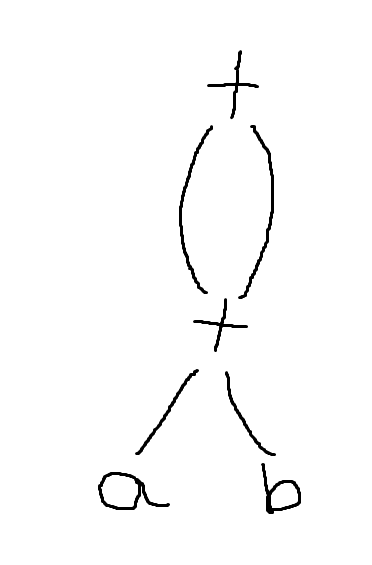 +
+
a b